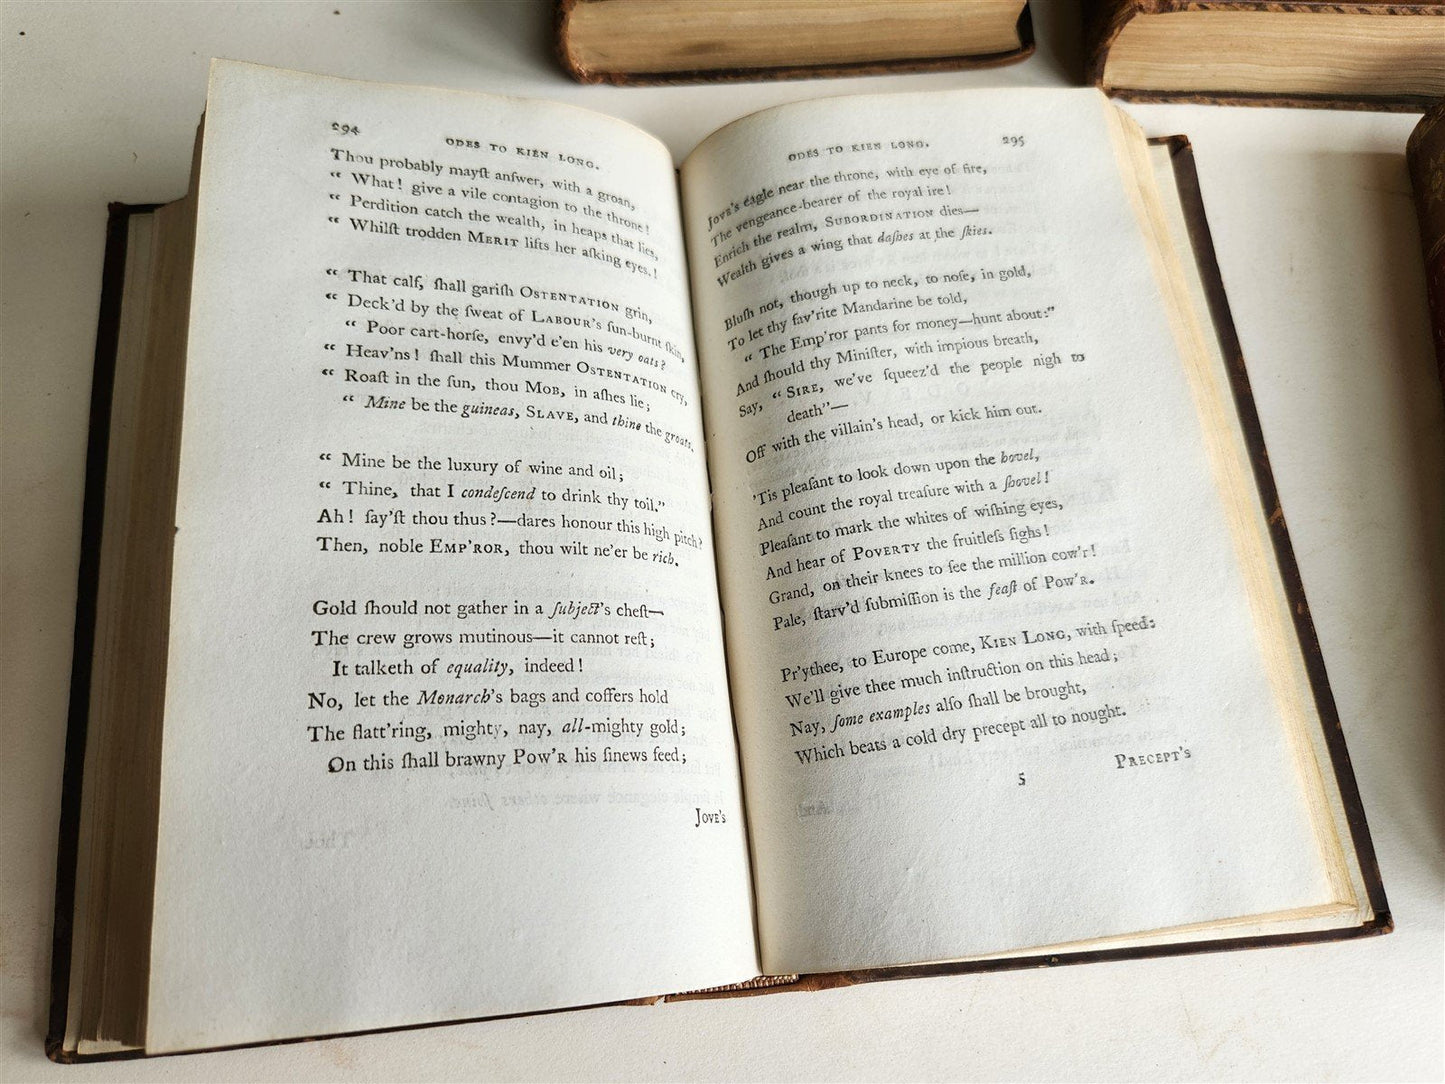 294
ODES TO KIEN LONG.
Thou probably mayſt anſwer, with a groan,
“ What! give a vile contagion to the throne!
“ Perdition catch the wealth, in heaps that lies,
“ Whilſt trodden MERIT lifts her aſking eyes!
“ That calf, ſhall gariſh OSTENTATION grin,
“ Deck'd by the ſweat of LABOUR's ſun-burnt ſkin,
“ Poor cart-horſe, envy'd e'en his very oats?
“ Heav'ns! ſhall this Mummer OSTENTATION cry,
“ Roaſt in the ſun, thou MOB, in aſhes lie;
“ Mine be the guineas, SLAVE, and thine the groats.
“ Mine be the luxury of wine and oil;
“ Thine, that I condeſcend to drink thy toil.”
Ah! ſay'ſt thou thus?—dares honour this high pitch?
Then, noble EMP'ROR, thou wilt ne'er be rich.
Gold ſhould not gather in a ſubject's cheſt—
The crew grows mutinous—it cannot reſt;
It talketh of equality, indeed!
No, let the Monarch's bags and coffers hold
The flatt'ring, mighty, nay, all-mighty gold;
On this ſhall brawny POW'R his ſinews feed;
JOVE's
ODES TO KIEN LONG.
295
JOVE's eagle near the throne, with eye of fire,
The vengeance-bearer of the royal ire!
Enrich the realm, SUBORDINATION dies—
Wealth gives a wing that daſhes at the ſkies.
Bluſh not, though up to neck, to noſe, in gold,
To let thy fav'rite Mandarine be told,
“ The Emp'ror pants for money—hunt about:”
And ſhould thy Miniſter, with impious breath,
Say, “ SIRE, we've ſqueez'd the people nigh to
death”—
Off with the villain's head, or kick him out.
'Tis pleaſant to look down upon the hovel,
And count the royal treaſure with a ſhovel!
Pleaſant to mark the whites of wiſhing eyes,
And hear of POVERTY the fruitleſs ſighs!
Grand, on their knees to ſee the million cow'r!
Pale, ſtarv'd ſubmiſſion is the feaſt of POW'R.
Pr'ythee, to Europe come, KIEN LONG, with ſpeed:
We'll give thee much inſtruction on this head;
Nay, ſome examples alſo ſhall be brought,
Which beats a cold dry precept all to nought.
5
PRECEPT's